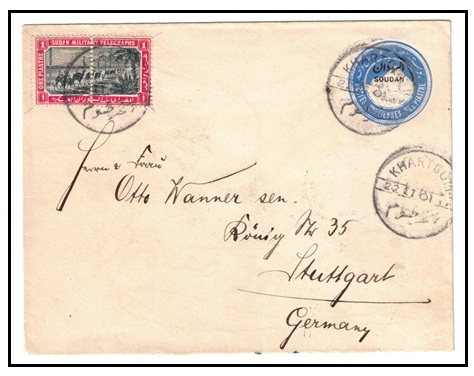 SUDAN MILITARY TELEGRAPHS
1 1
ONE PIASTRE
السودان
SOUDAN
KHARTOUM
KHARTOUM
22 II 01
Herrn & Frau
Otto Wanner sen.
König Str 35
Stuttgart
Germany